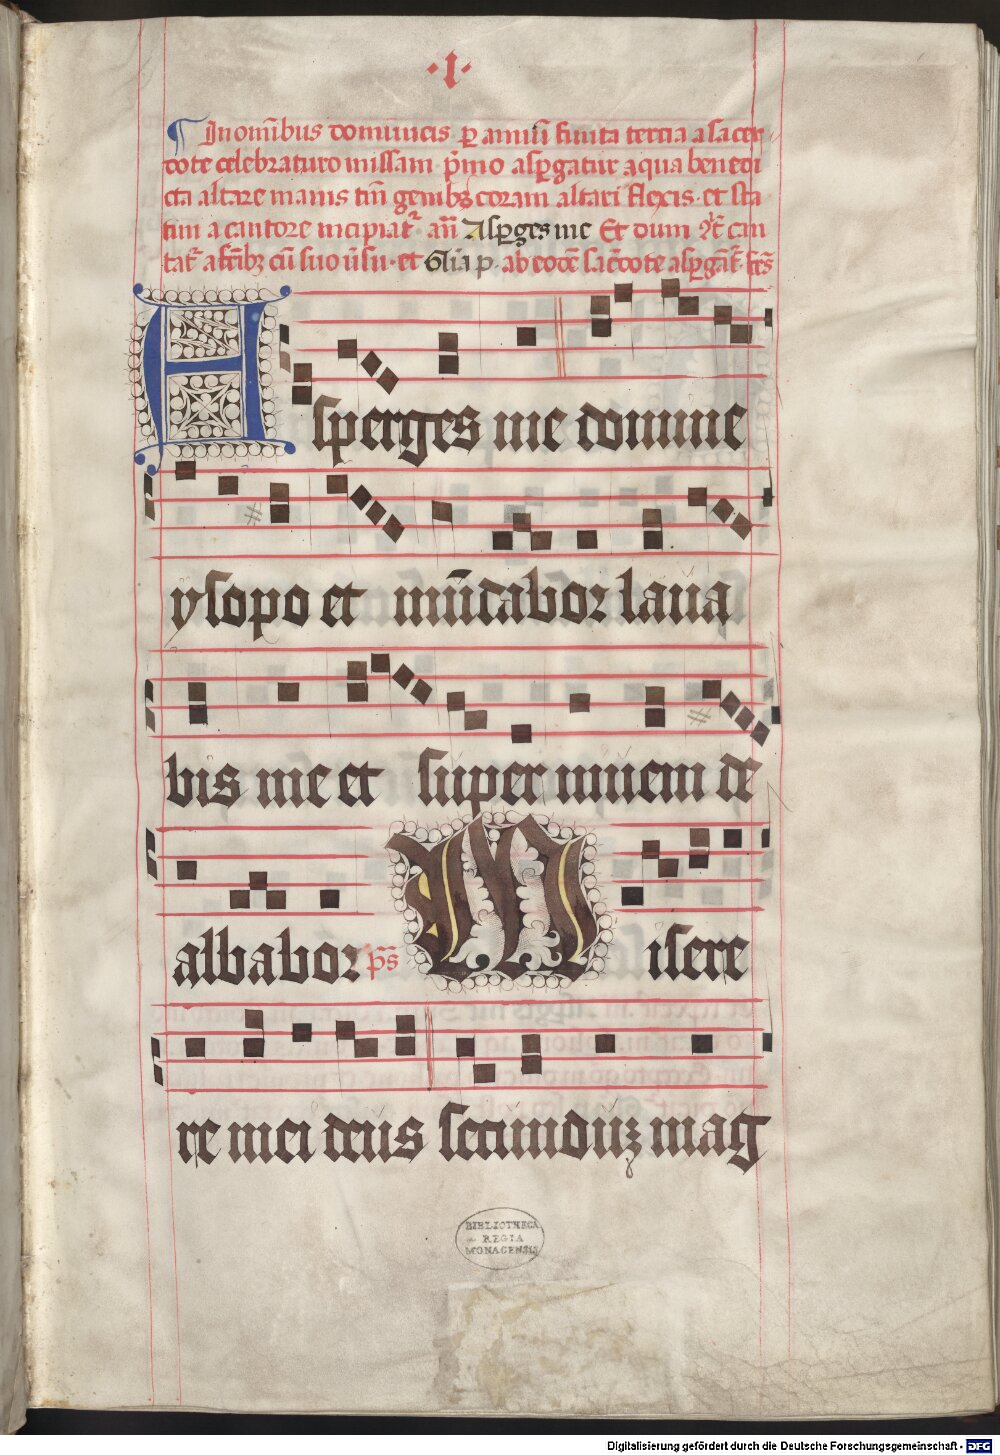 ·I·
¶ In om̄ibus dominicis ꝑ annū finita tercia a sacer
dote celebraturo missam p̄mo asꝑgatur aqua benedi
cta altare manis tm̄ genibꝫ coram altari flexis· et sta
tim a cantore incipiat᷑ an̄ Asꝑges me Et dum
tat᷑ a fr̄ibꝫ cū suo v̄su· et Gl̄ia p· ab eodē sac̄dote asꝑgāt᷑ fr̄s
Asperges me domine
ysopo et mūdabor laua
bis me et super niuem de
albabor p̄s Misere
re mei deus secunduꝫ mag
BIBLIOTHECA
REGIA
MONACENSIS
Digitalisierung gefördert durch die Deutsche Forschungsgemeinschaft - DFG